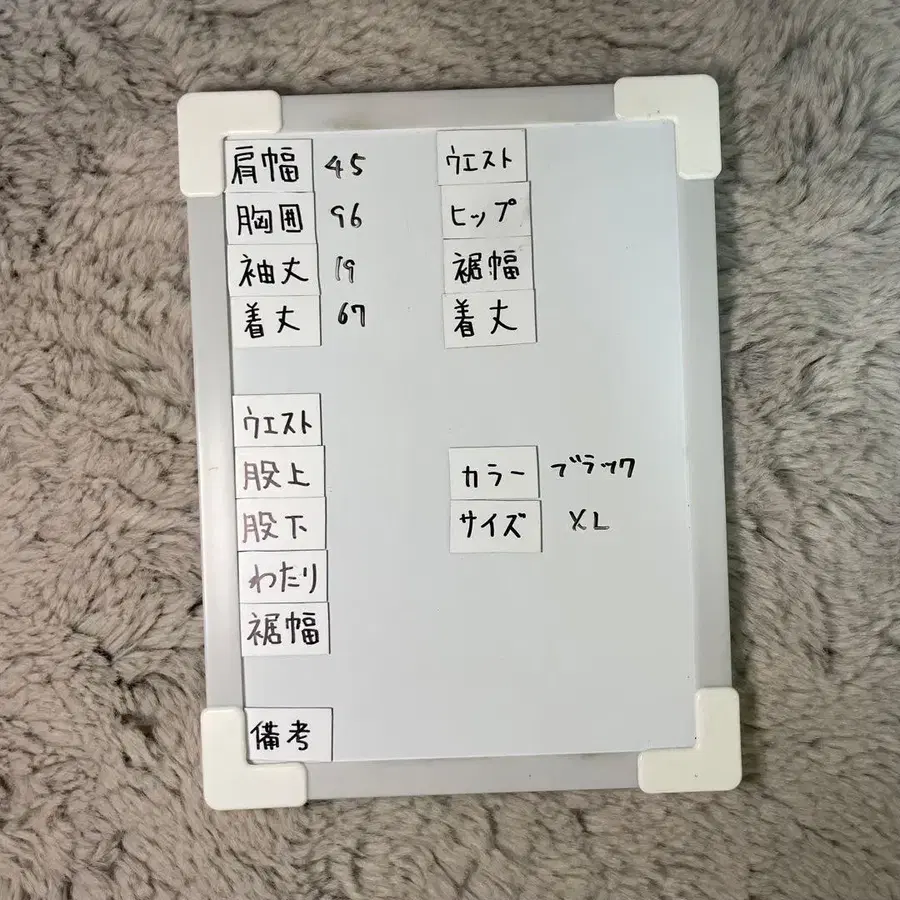 肩幅 45
胸囲 96
袖丈 19
着丈 67
ウエスト
ヒップ
裾幅
着丈
ウエスト
股上
股下
わたり
裾幅
カラー ブラック
サイズ XL
備考